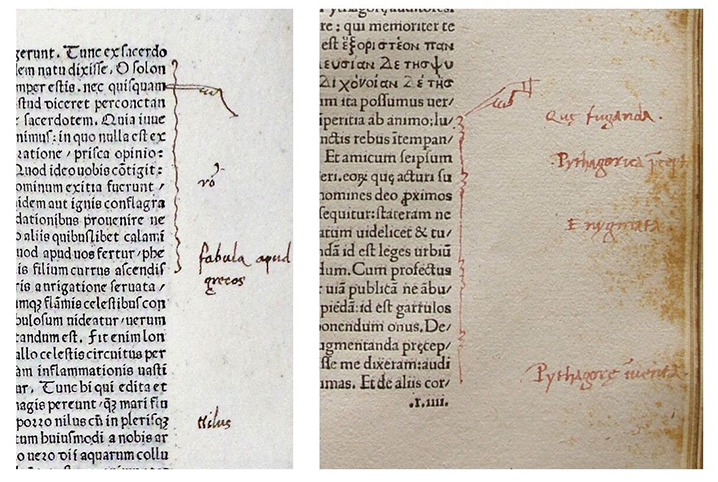 gerunt. Tunc ex sacerdo
dem natu dixisse. O solon
mper estis. nec quisquam
istud diceret percontan
e sacerdotem. Quia iuue
nimus: in quo nulla est ex
ratione, prisca opinio:
Quod ideo uobis cõtigit:
ominum exitia fuerunt,
idem aut ignis conflagra
dationibus prouenire ne
o aliis quibuslibet calami
uod apud uos fertur, phe
is filium currus ascendis
ris aurigatione seruata,
umq; flãmis celestibus con
bulosum uideatur, uerum
tandum est. Fit enim lon
allo celestis circuitus per
am inflammationis uasti
ar. Tunc hi qui edita et
magis pereunt, q̃; mari flu
porro nilus cũ in plerisq;
tum huiusmodi a nobis ar
o uero dii aquarum collu
fabula apud
grecos
nilus
re: qui memoriter te
est ἐξοριστέον παν
im ita possumus uer/
iperitia ab animo; lu/
nctis rebus ítempan/
Et amicum seipsum
eri. eorꝝ quę acturi su
nomines deo ꝓximos
sequitur: stateram ne
atum uidelicet & tu/
ndã id est leges urbiũ
dum. Cum profectus
uiã publicã ne ãbu/
piédã: id est garrulos
ponendum onus. De/
ugmentanda pręcep/
sse me dixeram: audi
umas. Et de aliis cor/
.r.iiii.
Quę fuganda.
Pythagorica p̃cept
Enygmata
Pythagorę iventa